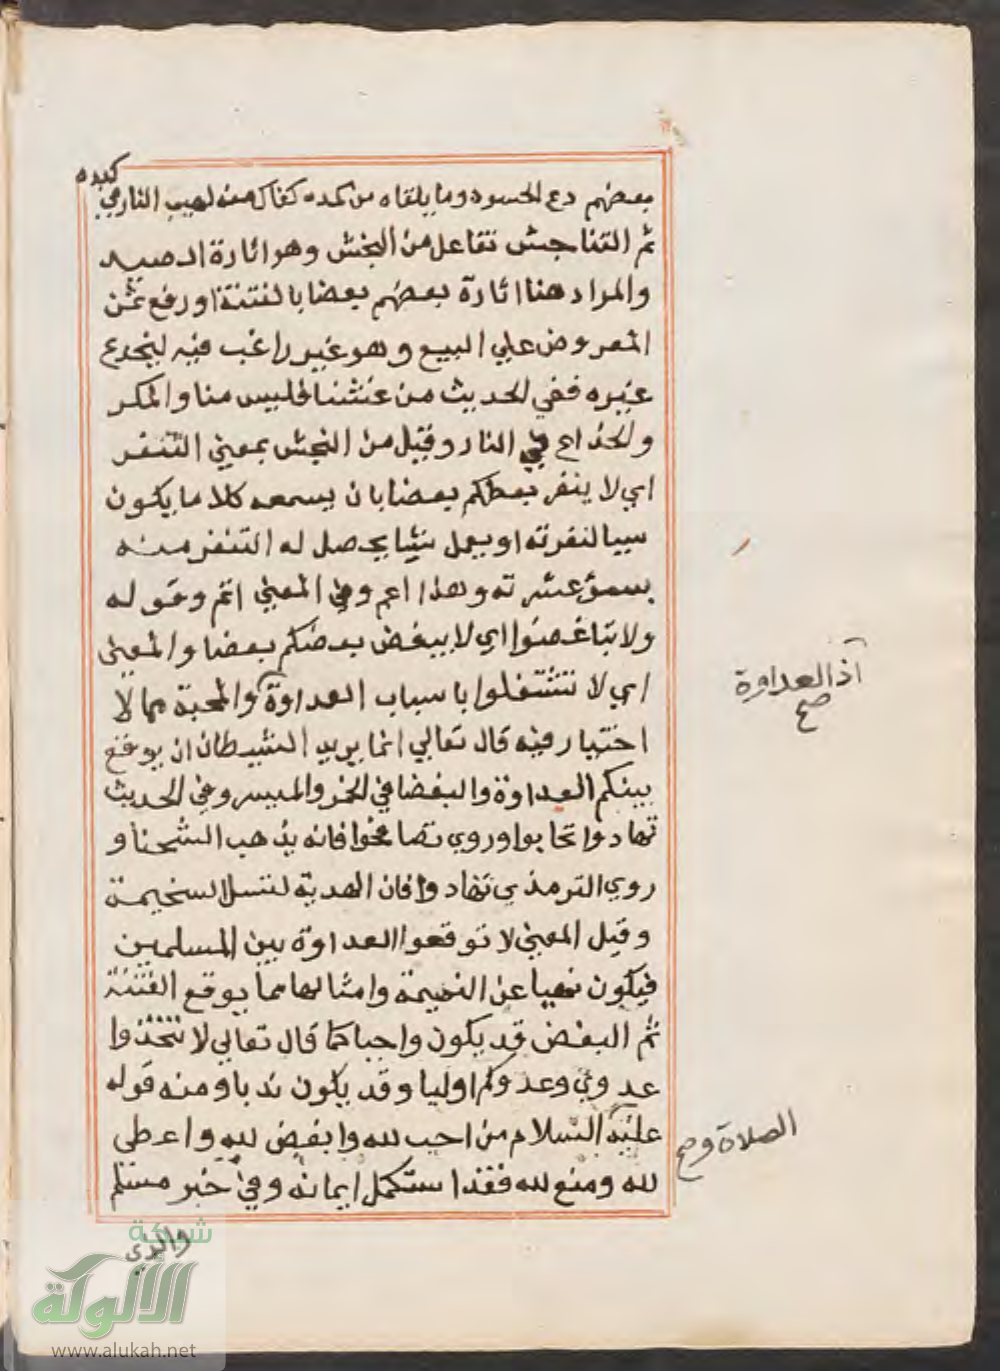 بعضهم دع الحسود وما يلقاه من كمده كفاك منه لهيب النار في
كبده
ثم التناجش تفاعل من النجش وهو اثارة الصيد
والمراد هنا اثارة بعضهم بعضا بالفتنة او رفع ثمن
المعروض علي البيع وهو غير راغب فيه ليخدع
غيره ففي الحديث من غشنا فليس منا والمكر
والخداع في النار وقيل من النجش بمعني التنفر
اي لا ينفر بعضكم بعضا بان يسمعه كلاما يكون
سببا لنفرته او يعمل شيئا يحصل له التنفر منه
بسوء عشرته وهذا اعم وفي المعني اتم وقوله
ولا تباغضوا اي لا يبغض بعضكم بعضا والمعني
اي لا تشتغلوا باسباب العداوة والمحبة مما لا
آذ العداوة
صح
اختيار فيه قال تعالي انما يريد الشيطان ان يوقع
بينكم العداوة والبغضا في الخمر والميسر وفي الحديث
تهادوا تحابوا وروي تصافحوا فانه يذهب الشحنا و
روي الترمذي تهادوا فان الهدية لتسل السخيمة
وقيل المعني لا توقعوا العداوة بين المسلمين
فيكون نهيا عن النميمة وامثالها مما يوقع الفتنة
ثم البغض قد يكون واجبا كما قال تعالي لا تتخذوا
عدوي وعدوكم اوليا وقد يكون ندبا ومنه قوله
عليه السلام من احب لله وابغض لله واعطي
الصلاة و صح
لله ومنع لله فقد استكمل ايمانه وفي خبر مسلم
والذي
شبكة
الألوكة
www.alukah.net